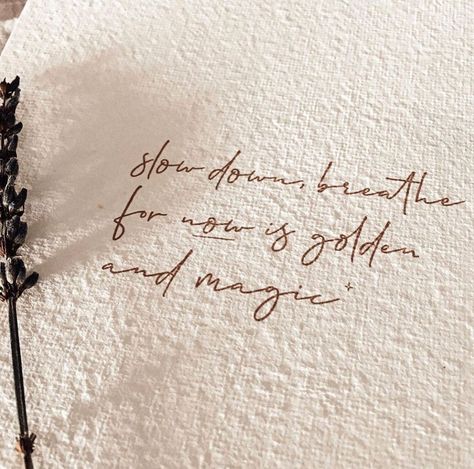 slow down, breathe
for now is golden
and magic